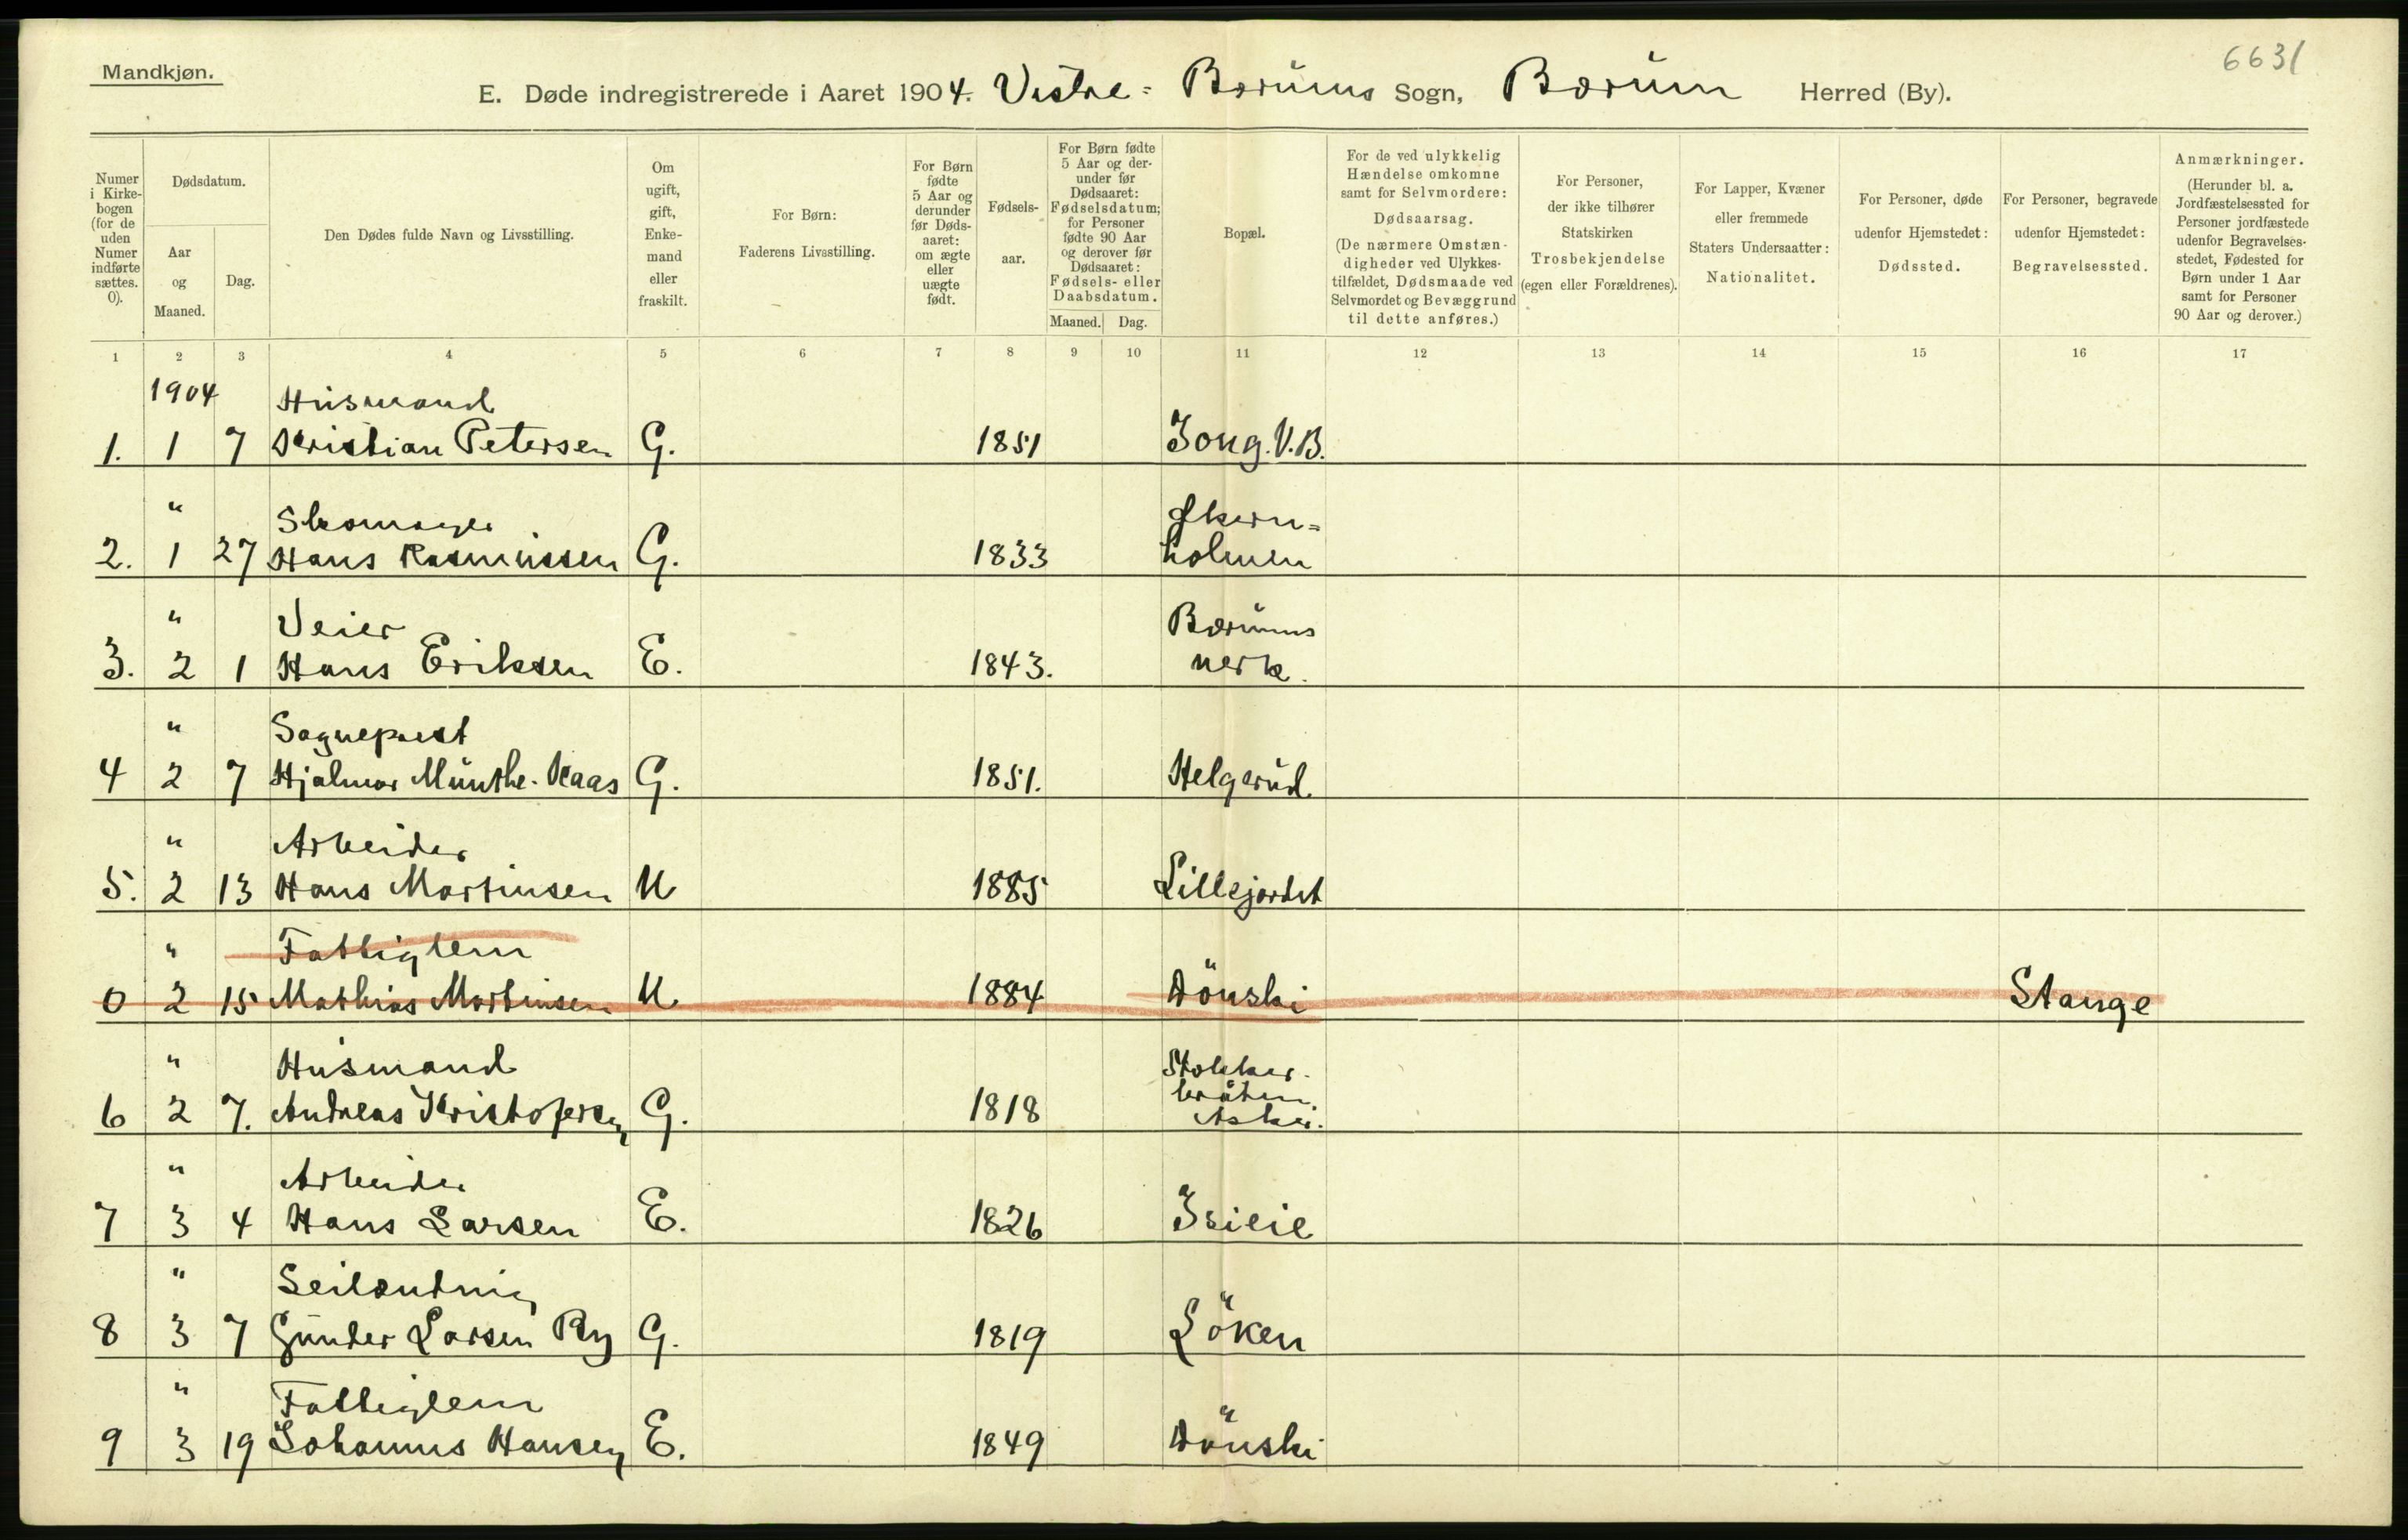 6631
Mandkjøn.
E. Døde indregistrerede i Aaret 1904. Vestre= Bærums Sogn, Bærum Herred (By).
Numer i Kirke-bogen (for de uden Numer indførte sættes. 0).
Dødsdatum.
Aar og Maaned.
Dag.
Den Dødes fulde Navn og Livsstilling.
Om ugift, gift, Enke-mand eller fraskilt.
For Børn:
Faderens Livsstilling.
For Børn fødte 5 Aar og derunder før Døds-aaret: om ægte eller uægte født.
Fødsels-aar.
For Børn fødte 5 Aar og der-under før Dødsaaret: Fødselsdatum; for Personer fødte 90 Aar og derover før Dødsaaret: Fødsels- eller Daabsdatum.
Maaned. Dag.
Bopæl.
For de ved ulykkelig Hændelse omkomne samt for Selvmordere: Dødsaarsag. (De nærmere Omstæn-digheder ved Ulykkes-tilfældet, Dødsmaade ved Selvmordet og Bevæggrund til dette anføres.)
For Personer, der ikke tilhører Statskirken Trosbekjendelse (egen eller Forældrenes).
For Lapper, Kvæner eller fremmede Staters Undersaatter: Nationalitet.
For Personer, døde udenfor Hjemstedet: Dødssted.
For Personer, begravede udenfor Hjemstedet: Begravelsessted.
Anmærkninger. (Herunder bl. a. Jordfæstelsessted for Personer jordfæstede udenfor Begravelses-stedet, Fødested for Børn under 1 Aar samt for Personer 90 Aar og derover.)
1 2 3 4 5 6 7 8 9 10 11 12 13 14 15 16 17
1904 Husmand
1. 1 7 Kristian Petersen G. 1851 Jong. V. B.
" Skomager
2. 1 27 Hans Rasmussen G. 1833 holmen
" Veier Bærums
3. 2 1 Hans Eriksen E. 1843. verk.
" Sognepræst
4 2 7 Hjalmar Munthe-Kaas G. 1851. Helgerud.
" Arbeider
5. 2 13 Hans Martinsen U 1885 Lillejordet
" Fattiglem
0 2 15 Mathias Martinsen U. 1884 Dönski Stange
" Husmand
6 2 7. Andreas Kristofersen G. 1818 bråten. Asker.
" Arbeider
7 3 4 Hans Larsen E. 1826 Isieie
"
8 3 7 Gunder Larsen Ry G. 1819 Löken
" Fattiglem
9 3 19 Johannes Hansen E. 1849 Dönski